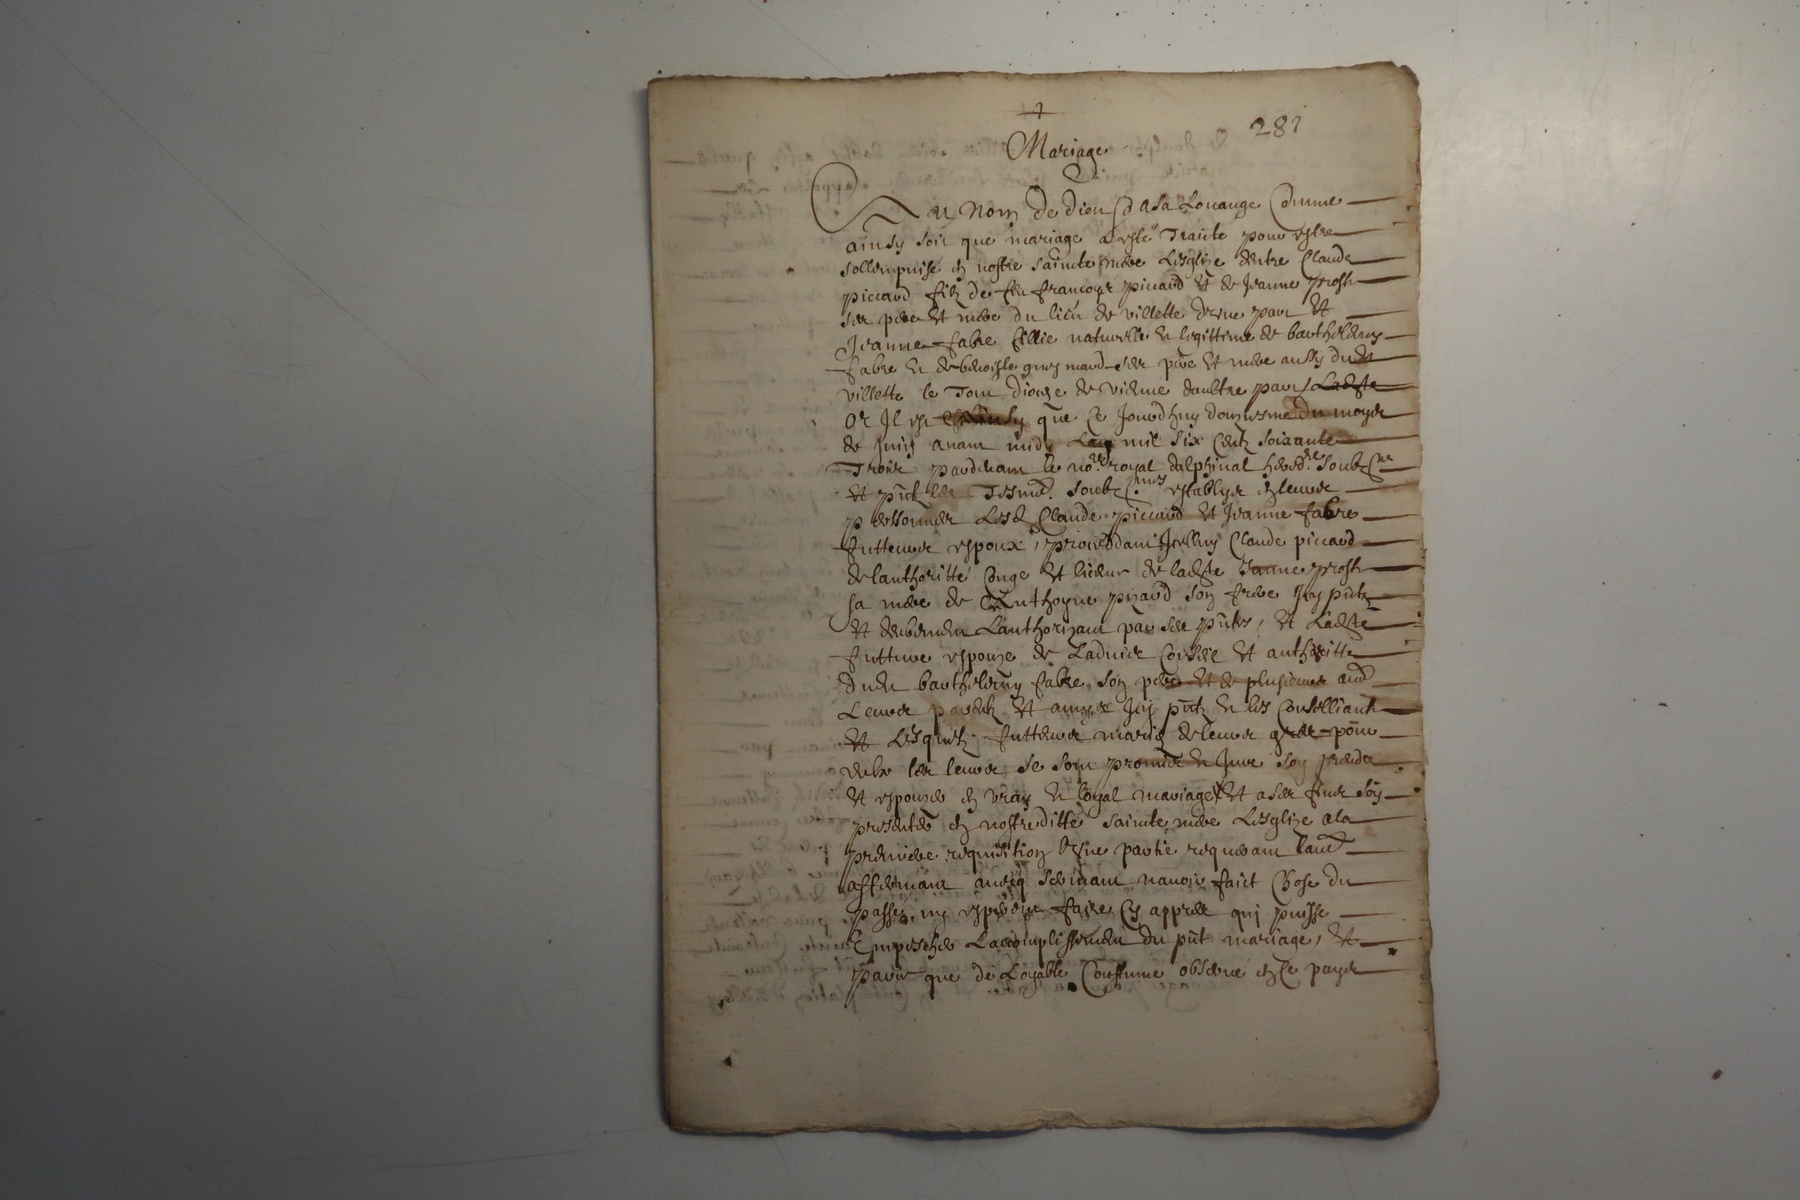 281
Mariage
Au Nom de dieu Et a sa Louange Comme
ainsy soit que mariage a esté Traicté pour estre
sollempnisé en nostre saincte mere Lesglize dentre Claude
piccard filz de feu francoys piccard et de Jeanne prost
ses pere et mere du lieu de villette dune part et
Jeanne fabre fillie naturelle et legittime de barthelemy
fabre et de benoiste ses pere et mere aussy dudt
villette le Tour dioceze de vienne daultre part
Or Il est que Ce Jourdhuy du moys
de Juin avant midy Lan mil six Centz soixante
Trois pardevant le no.re royal dalphinal hered.re soubz.ne
et pntz les Tesm. soubz.nes establys en leurs
personnes Lesd Claude piccard et Jeanne fabre
futteurs espoux, proceddant Icelluy Claude piccard
de lauthoritté Conge et licence de ladte Jeanne prost
sa mere de Anthoyne son frere Icy pntz
et deubement Lauthorizant par ses pntes, et Ladte
futture espouze de Ladvice Conseil et authoritte
dudt barthelemy fabre son pere et de plusieurs aud
Leurs parentz et amys Icy pntz et les Conselliant
et Lesquelz futteurs mariez de leurs grez pour
eulx les leurs se sont promis et Jure soy prendre
et espouzer en vray et loyal mariage et a ses fins soy
presenter en nostreditte saincte mere Lesglize a la
premiere requisition dune partie requerant Laud
affermant avecq serment navoir faict Chose du
passez ny esperer faire Cy appres quj puisse
Empescher Laccomplissement du pnt mariage, et
parce que de Loyable Coustume observe en Ce pays